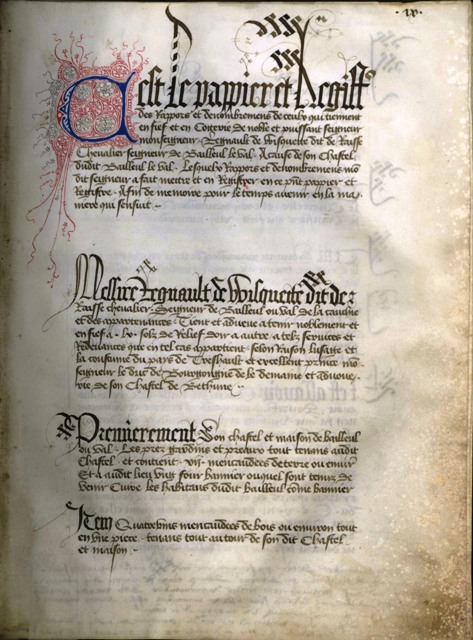 .ix.
Cest le pappier et Registre
des Rappors et denombremens de ceulx qui tiennent
en fief et en Coterie de noble et puissant seigneur
monseigneur Regnault de Wisquette dit de Raisse
Chevalier seigneur de Bailleul le val. A cause de son Chastel
dudit Bailleul le val. Lesquelx Rappors et denombremens mō
dit seigneur a fait mectre et en Registrer en ce pñt pappier et
Registre. Afin de memoire pour le temps avenir en la ma
niere qui sensuit.
Messire Regnault de Wisquette dit de
Raisse chevalier. Seigneur de Bailleul ou val. De la
et des appartenances. Tient et adveue a tenir noblement et
en fief a .lx. solz de Relief dun a autre a telz services et
Redevances que en tel cas appartient selon Raison lusaige et
la coustume du pays de Treshault et excellent prince mō
seigneur le duc de Bourgoingne de le demaine et
rie de son Chastel de Bethune.
Premierement Son chastel et maison de bailleul
ou val. Les prez gardins et preaux tout tenans audit
Chastel. et contient .vii. mencaudees de terre ou envirō
Et a audit lieu ung four bannier ouquel sont tenuz de
venir Cuire les habitans dudit bailleul cōme bannier
Item Quatrevins mencaudees de bois ou environ tout
en une piece. tenans tout autour de son dit Chastel
et maison.